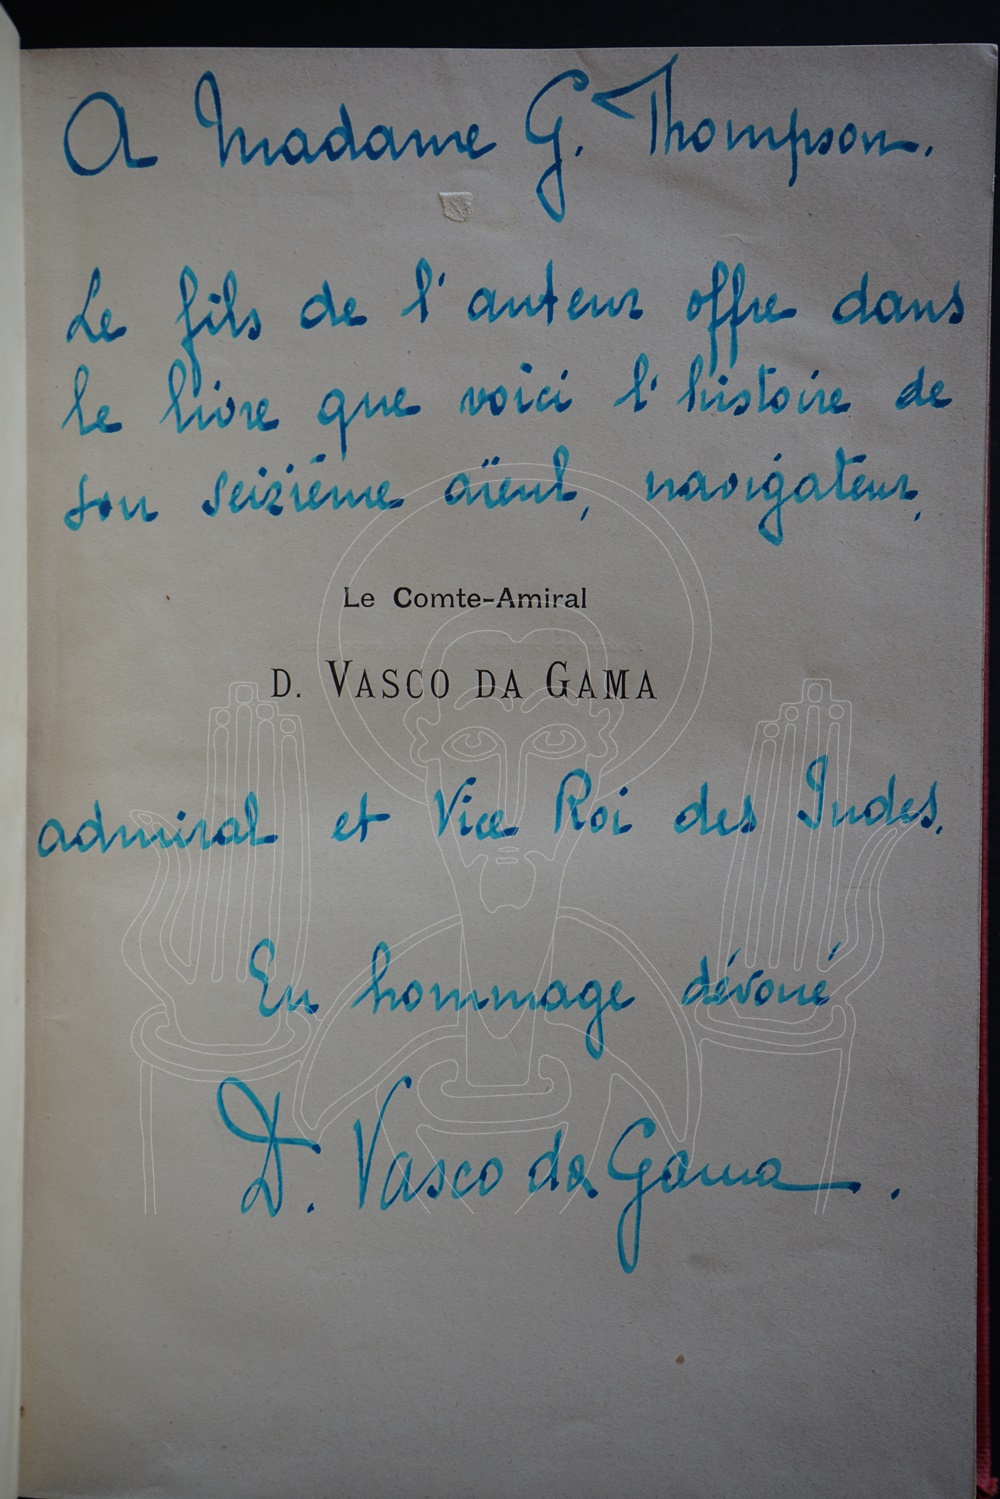 A Madame G. Thompson.
Le fils de l'auteur offre dans
le livre que voici l'histoire de
son seizième aïeul, navigateur,
Le Comte-Amiral
D. VASCO DA GAMA
admiral et Vice Roi des Indes.
En hommage dévoué
D. Vasco da Gama.